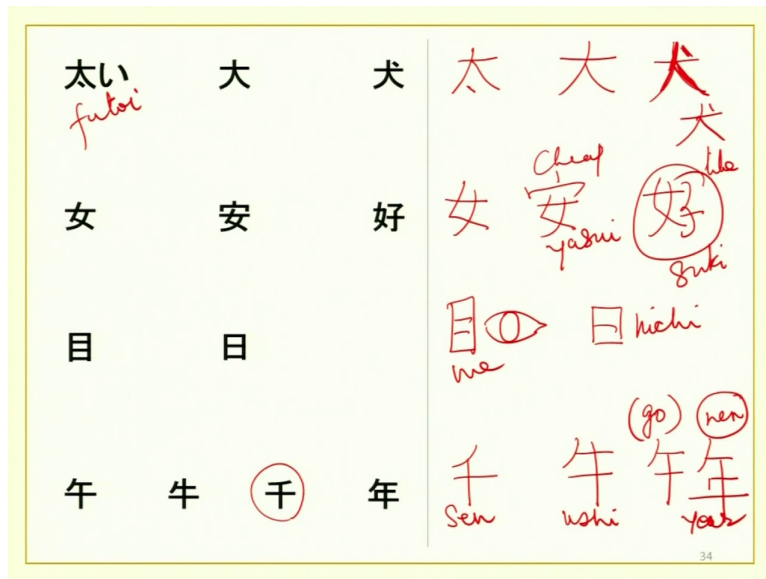 太い 大 犬
futoi
女 安 好
目 日
午 牛 千 年
太 大 犬
犬
cheap
like
女 安 好
yasui
suki
目 日 nichi
me
(go) nen
千 牛 午 年
sen ushi year
34